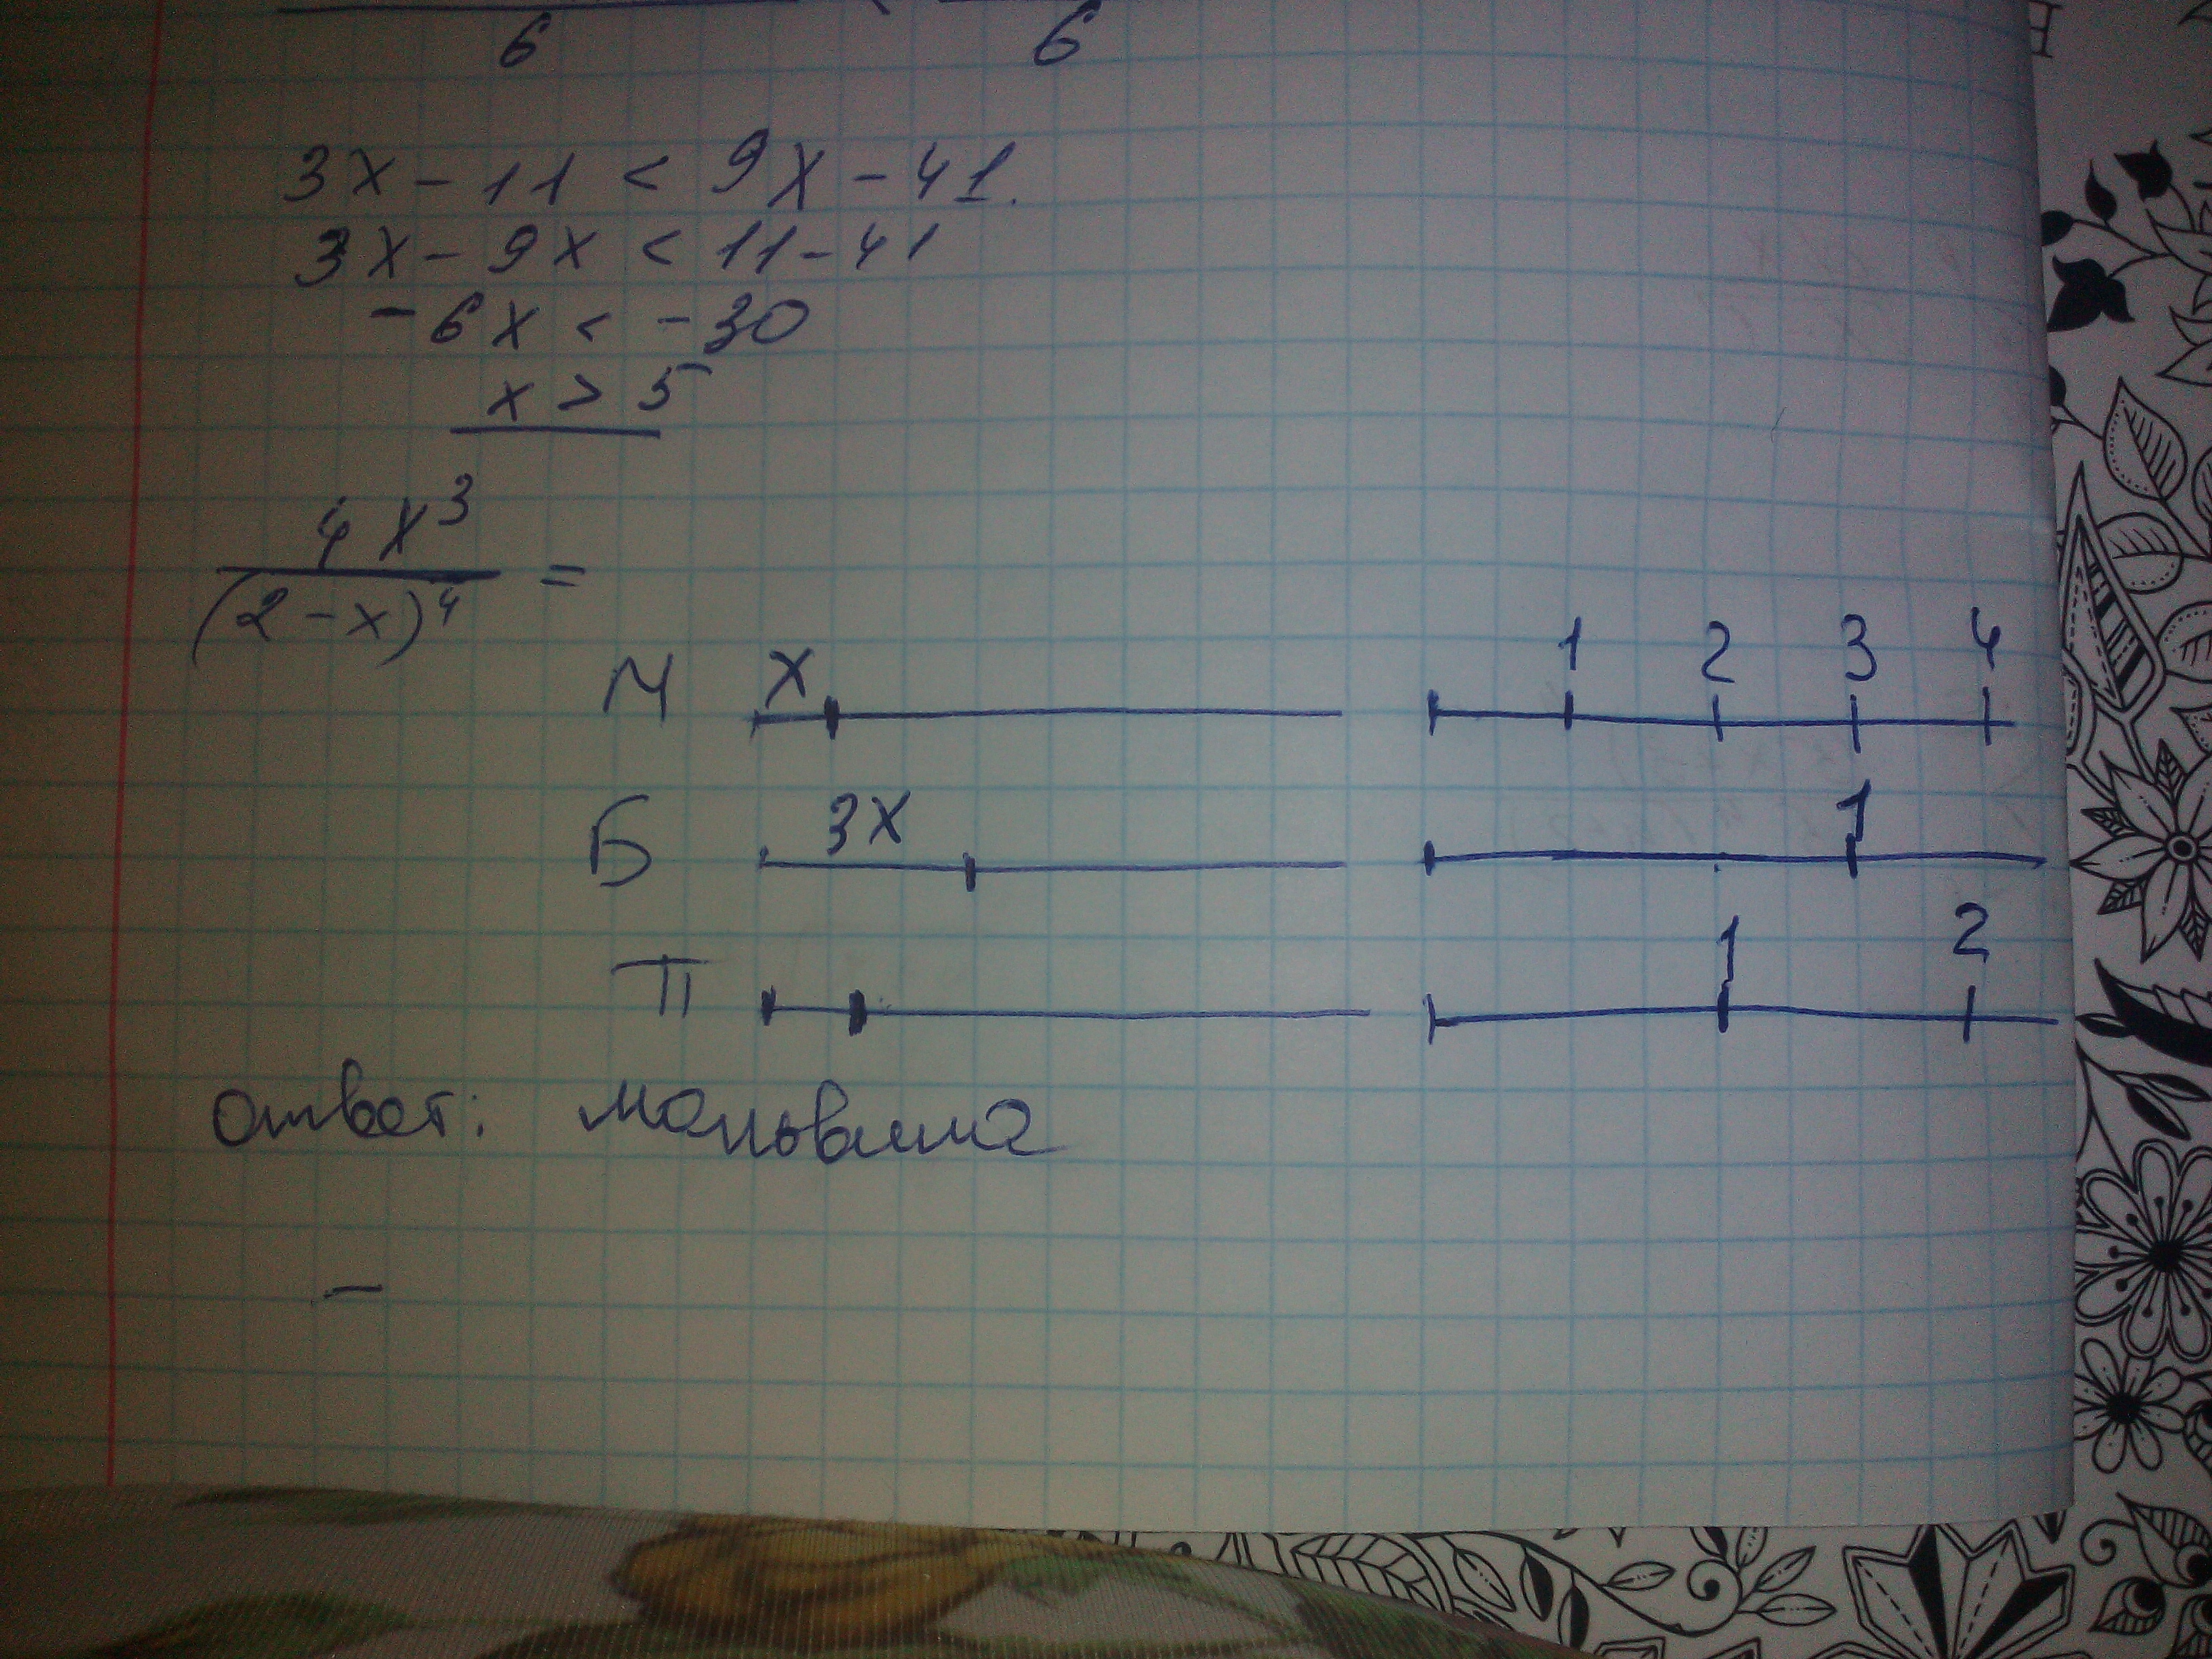 6 6
3x - 11 < 9x - 41.
3x - 9x < 11 - 41
-6x < -30
x > 5
4x³
(2-x)⁴ =
М x 1 2 3 4
Б 3x 1
П 1 2
ответ: мальвина